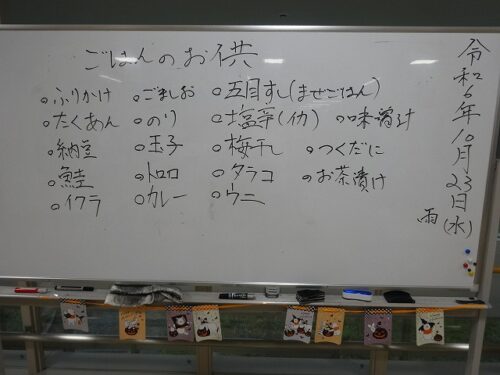 ごはんのお供
○ふりかけ ○ごましお ○五目すし(まぜごはん)
○たくあん ○のり ○塩辛(イカ) ○味噌汁
○納豆 ○玉子 ○梅干し ○つくだに
○鮭 ○トロロ ○タラコ ○お茶漬け
○イクラ ○カレー ○ウニ
令和6年10月23日(水)
雨